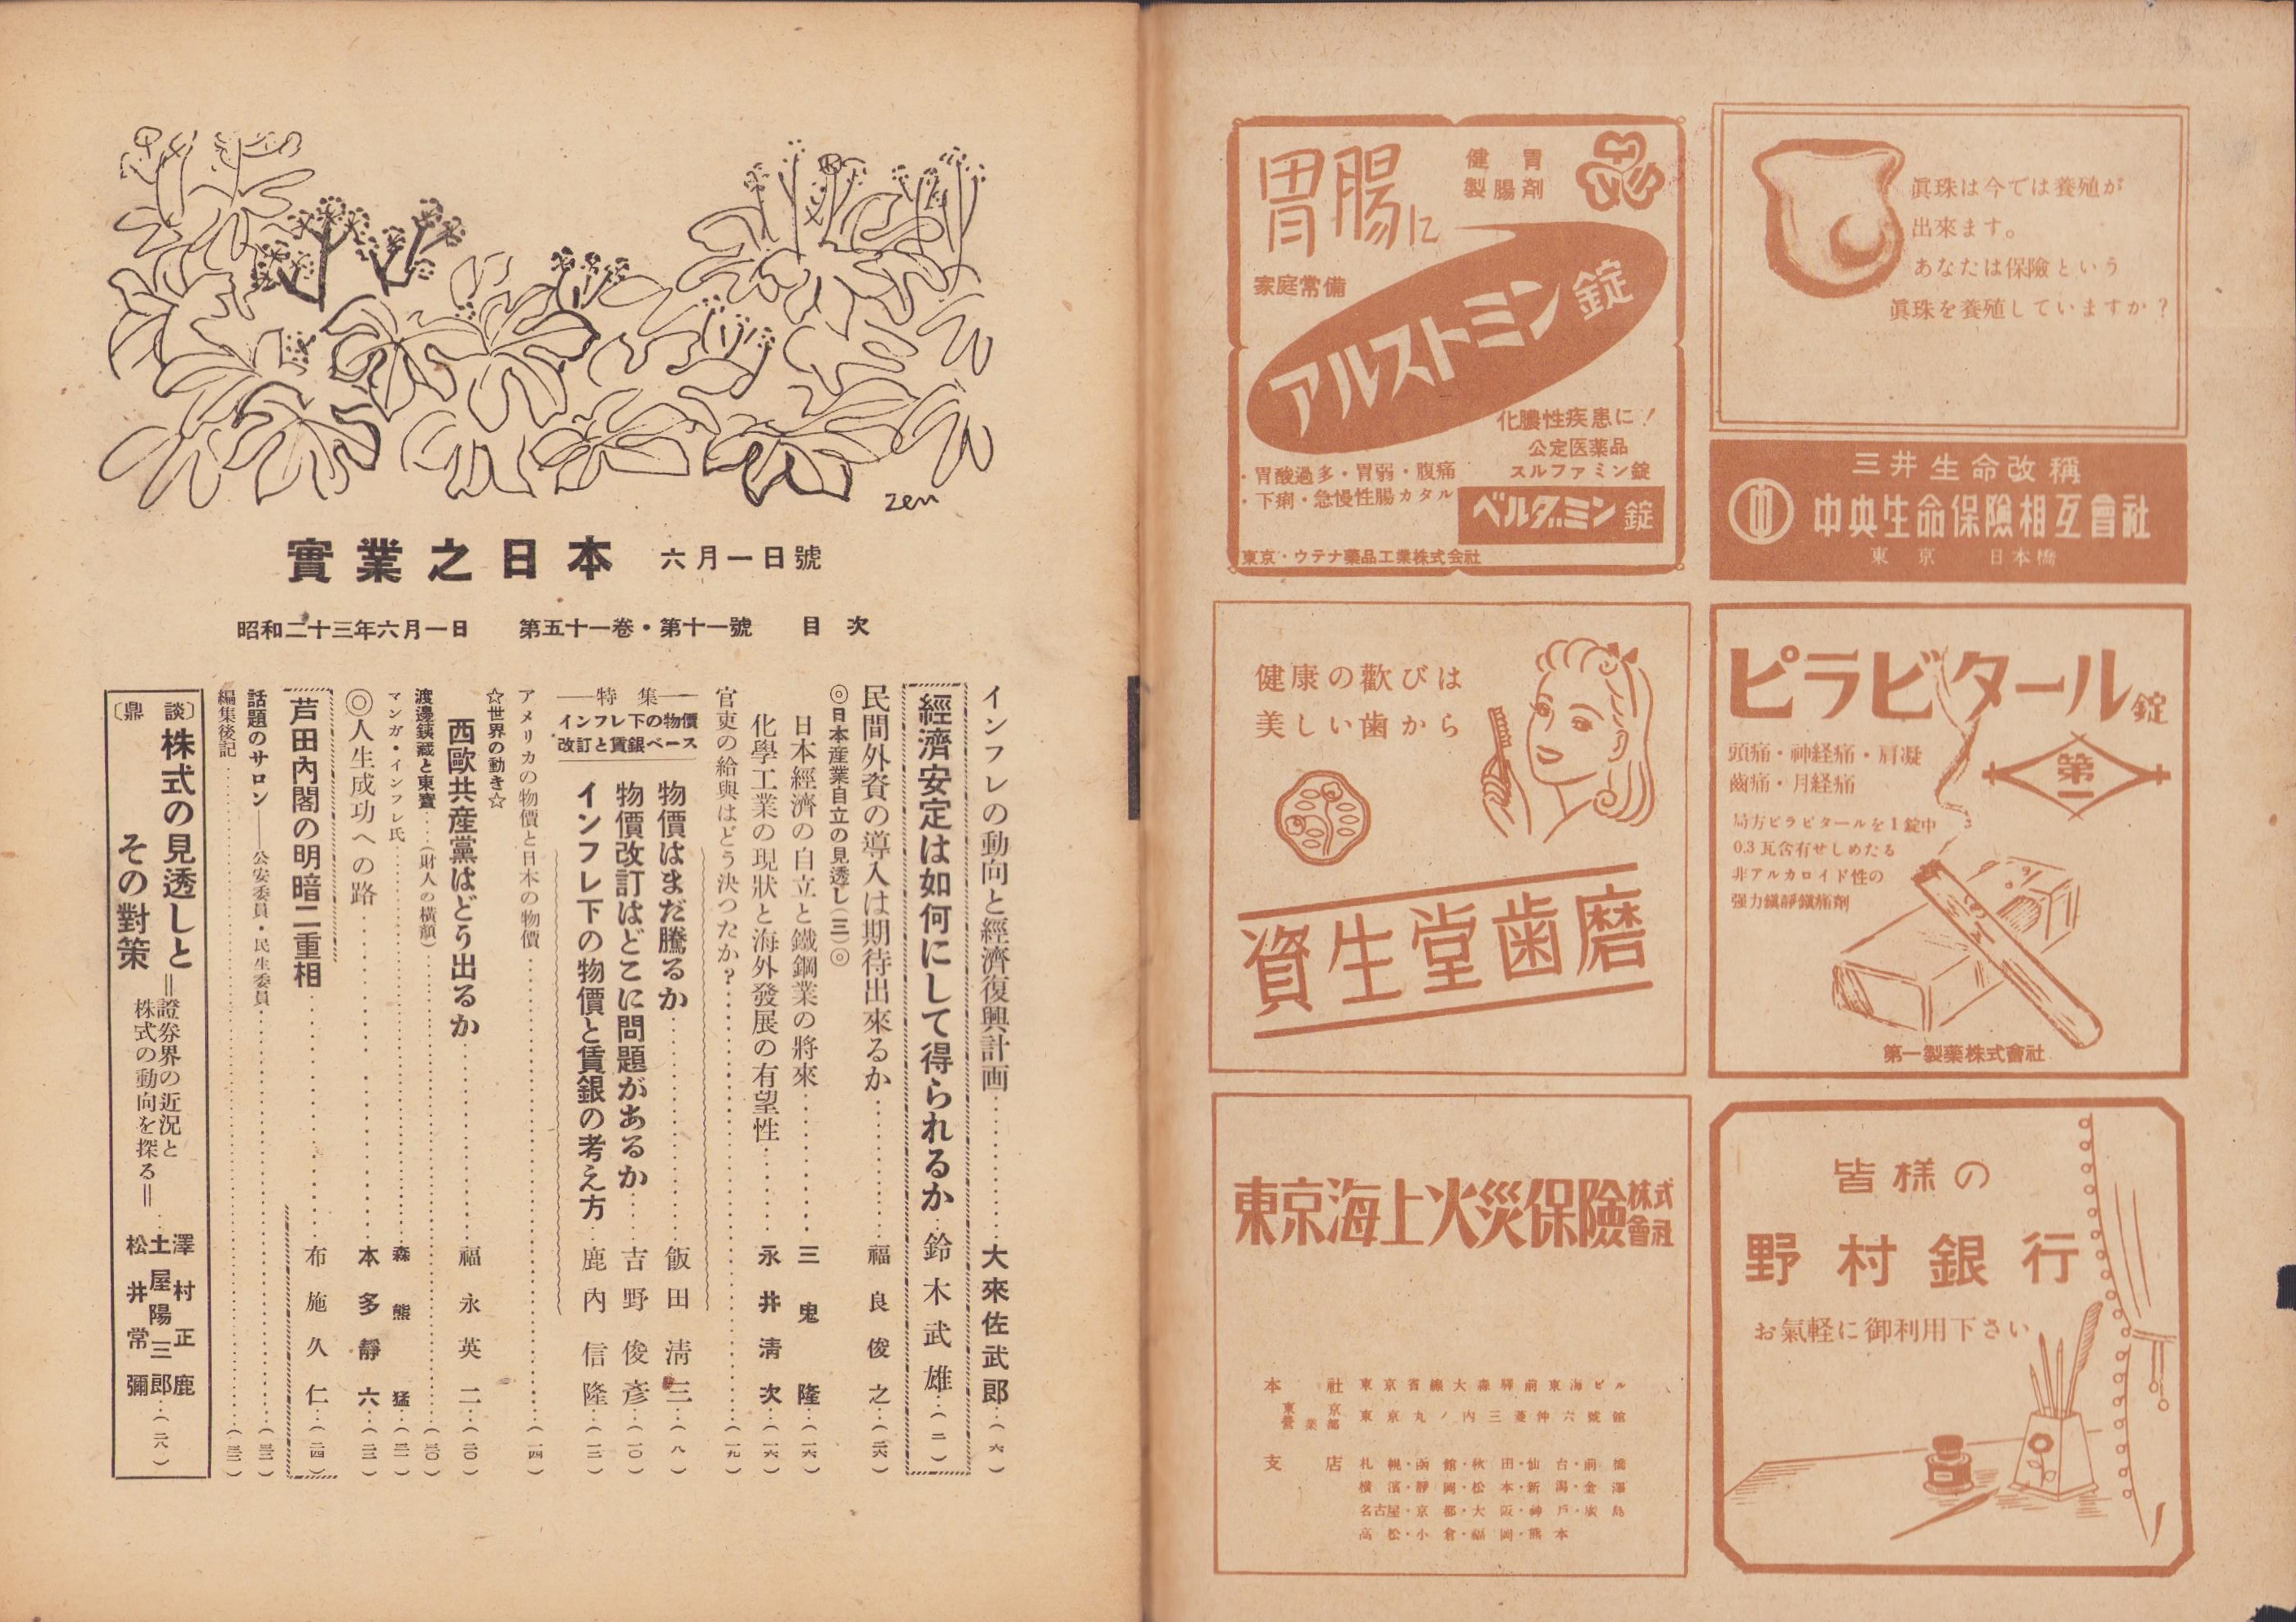 眞珠は今では養殖が
出來ます。
あなたは保險という
眞珠を養殖していますか?
三井生命改稱
中央生命保險相互會社
東京 日本橋
胃腸に
健胃
製腸剤
家庭常備
アルストミン錠
化膿性疾患に!
公定医薬品
スルファミン錠
ベルダミン錠
・胃酸過多・胃弱・腹痛
・下痢・急慢性腸カタル
東京・ウテナ藥品工業株式会社
ピラビタール錠
第一
頭痛・神経痛・肩凝
齒痛・月経痛
局方ピラビタールを1錠中
0.3瓦含有せしめたる
非アルカロイド性の
强力鎭靜鎭痛剤
第一製薬株式會社
健康の歡びは
美しい歯から
資生堂歯磨
皆様の
野村銀行
お氣軽に御利用下さい
東京海上火災保險株式會社
本社 東京省線大森驛前東海ビル
東京營業部 東京丸ノ内三菱仲六號館
支店 札幌・函館・秋田・仙台・前橋
横濱・靜岡・松本・新潟・金澤
名古屋・京都・大阪・神戸・廣島
高松・小倉・福岡・熊本
zen
實業之日本 六月一日號
昭和二十三年六月一日 第五十一卷・第十一號 目次
インフレの動向と經濟復興計画 大來佐武郎(六)
經濟安定は如何にして得られるか 鈴木武雄(二)
民間外資の導入は期待出來るか 福良俊之(二六)
◎日本産業自立の見透し(三)◎
日本經濟の自立と鐵鋼業の將來 三鬼隆(一六)
化學工業の現狀と海外發展の有望性 永井淸次(一六)
官吏の給與はどう決つたか?(一九)
―特集―
インフレ下の物價
改訂と賃銀ベース
物價はまだ騰るか 飯田淸三(八)
物價改訂はどこに問題があるか 吉野俊彥(一〇)
インフレ下の物價と賃銀の考え方 鹿內信隆(一二)
アメリカの物價と日本の物價(一四)
☆世界の動き☆
西歐共産黨はどう出るか 福永英二(二〇)
渡邊銕藏と東寶(財人の橫顔)(一〇)
マンガ・インフレ氏 森熊猛(二一)
◎人生成功への路 本多靜六(二二)
芦田內閣の明暗二重相 布施久仁(二四)
話題のサロン――公安委員・民生委員(三二)
編集後記(三二)
〔鼎談〕
株式の見透しと
その對策
=證券界の近況と
株式の動向を探る=
澤村正鹿
土屋陽三郎
松井常彌(二八)